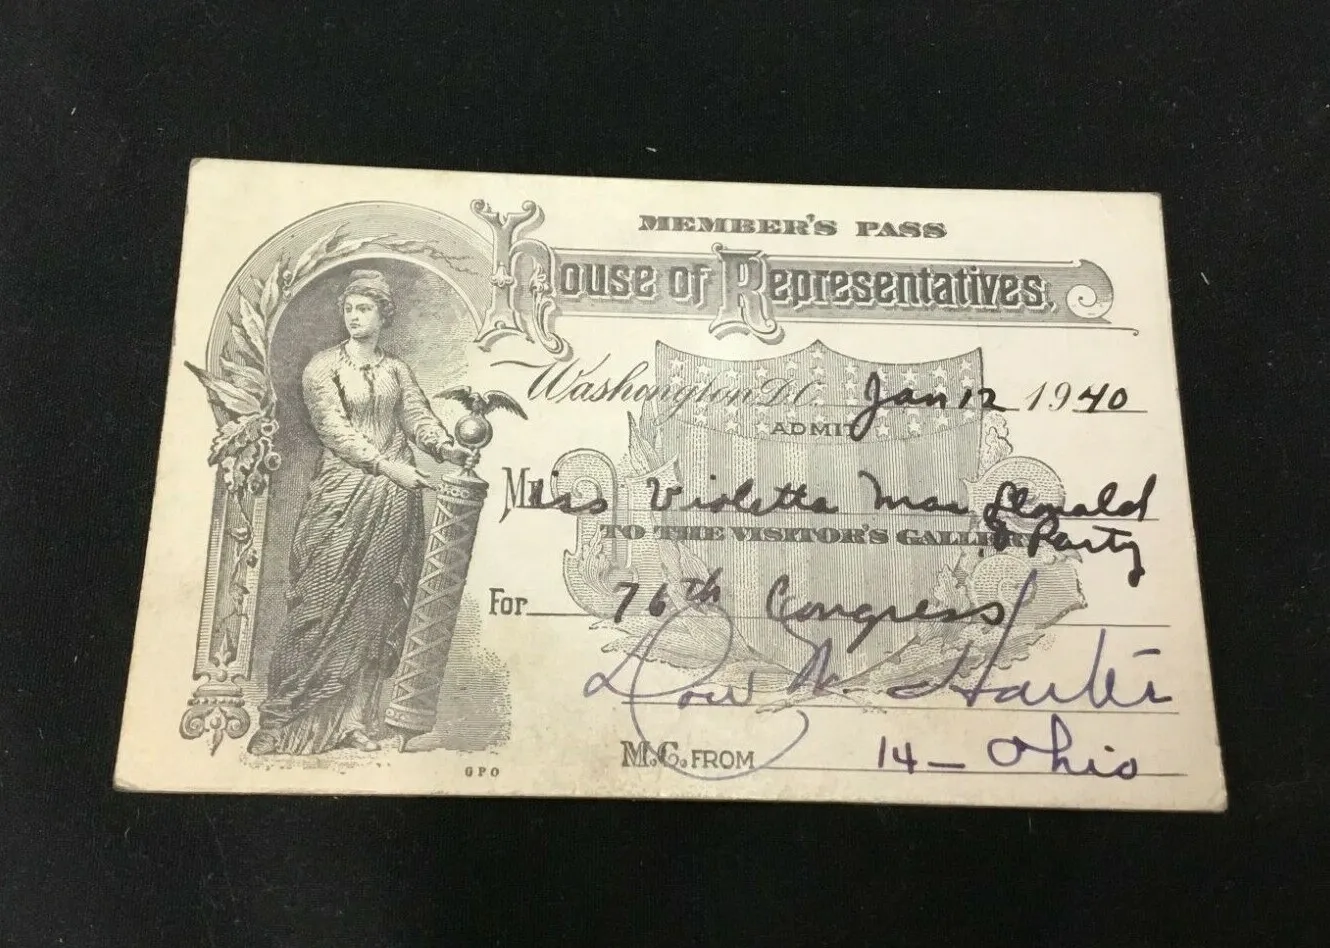 MEMBER'S PASS
House of Representatives.
Washington D.C. Jan 12 1940
ADMIT
Miss Violetta Mac Donald
& Party
TO THE VISITOR'S GALLERY
For 76th Congress
Dow W. Harter
M.C. FROM 14 - Ohio
GPO